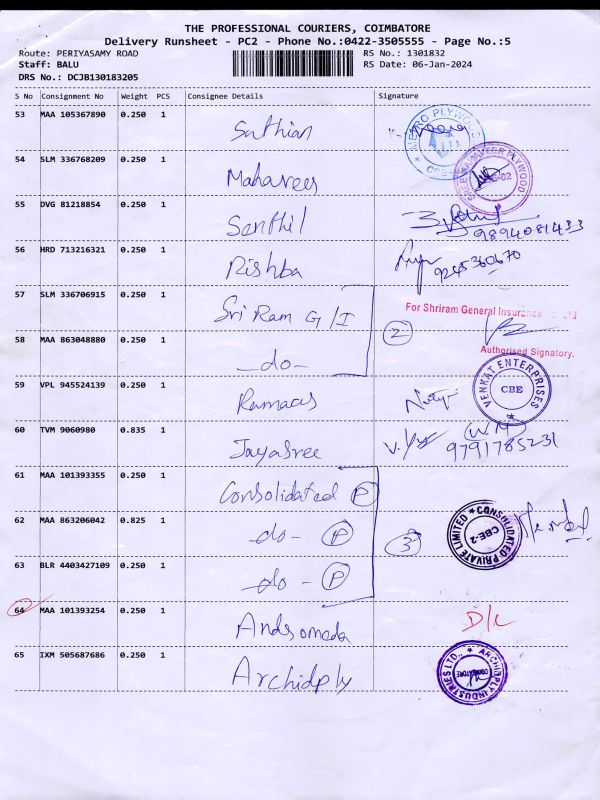 THE PROFESSIONAL COURIERS, COIMBATORE
Delivery Runsheet - PC2 - Phone No.:0422-3505555 - Page No.:5
Route: PERIYASAMY ROAD RS No.: 1301832
Staff: BALU RS Date: 06-Jan-2024
DRS No.: DCJB130183205
S No Consignment No Weight PCS Consignee Details Signature
53 MAA 105367890 0.250 1 Sathian METRO PLYWOOD
54 SLM 336768209 0.250 1 Mahaveer SREE MAHAVEER PLYWOOD
55 DVG 81218854 0.250 1 Senthil 9894081433
56 HRD 713216321 0.250 1 Rishba 9245360670
57 SLM 336706915 0.250 1 Sri Ram G/I For Shriram General Insurance Co. Ltd
58 MAA 863048880 0.250 1 -do- 2 Authorised Signatory.
59 VPL 945524139 0.250 1 Ramacas VENKAT ENTERPRISES CBE
60 TVM 9060980 0.835 1 Jayasree 9791785231
61 MAA 101393355 0.250 1 Consolidated P
62 MAA 863206042 0.825 1 -do- P 3 CONSOLIDATED PRIVATE LIMITED CBE-2
63 BLR 4403427109 0.250 1 -do- P
64 MAA 101393254 0.250 1 Andromeda D/L
65 IXM 505687686 0.250 1 Archidply ARCHIDPLY INDUSTRIES LTD., COIMBATORE